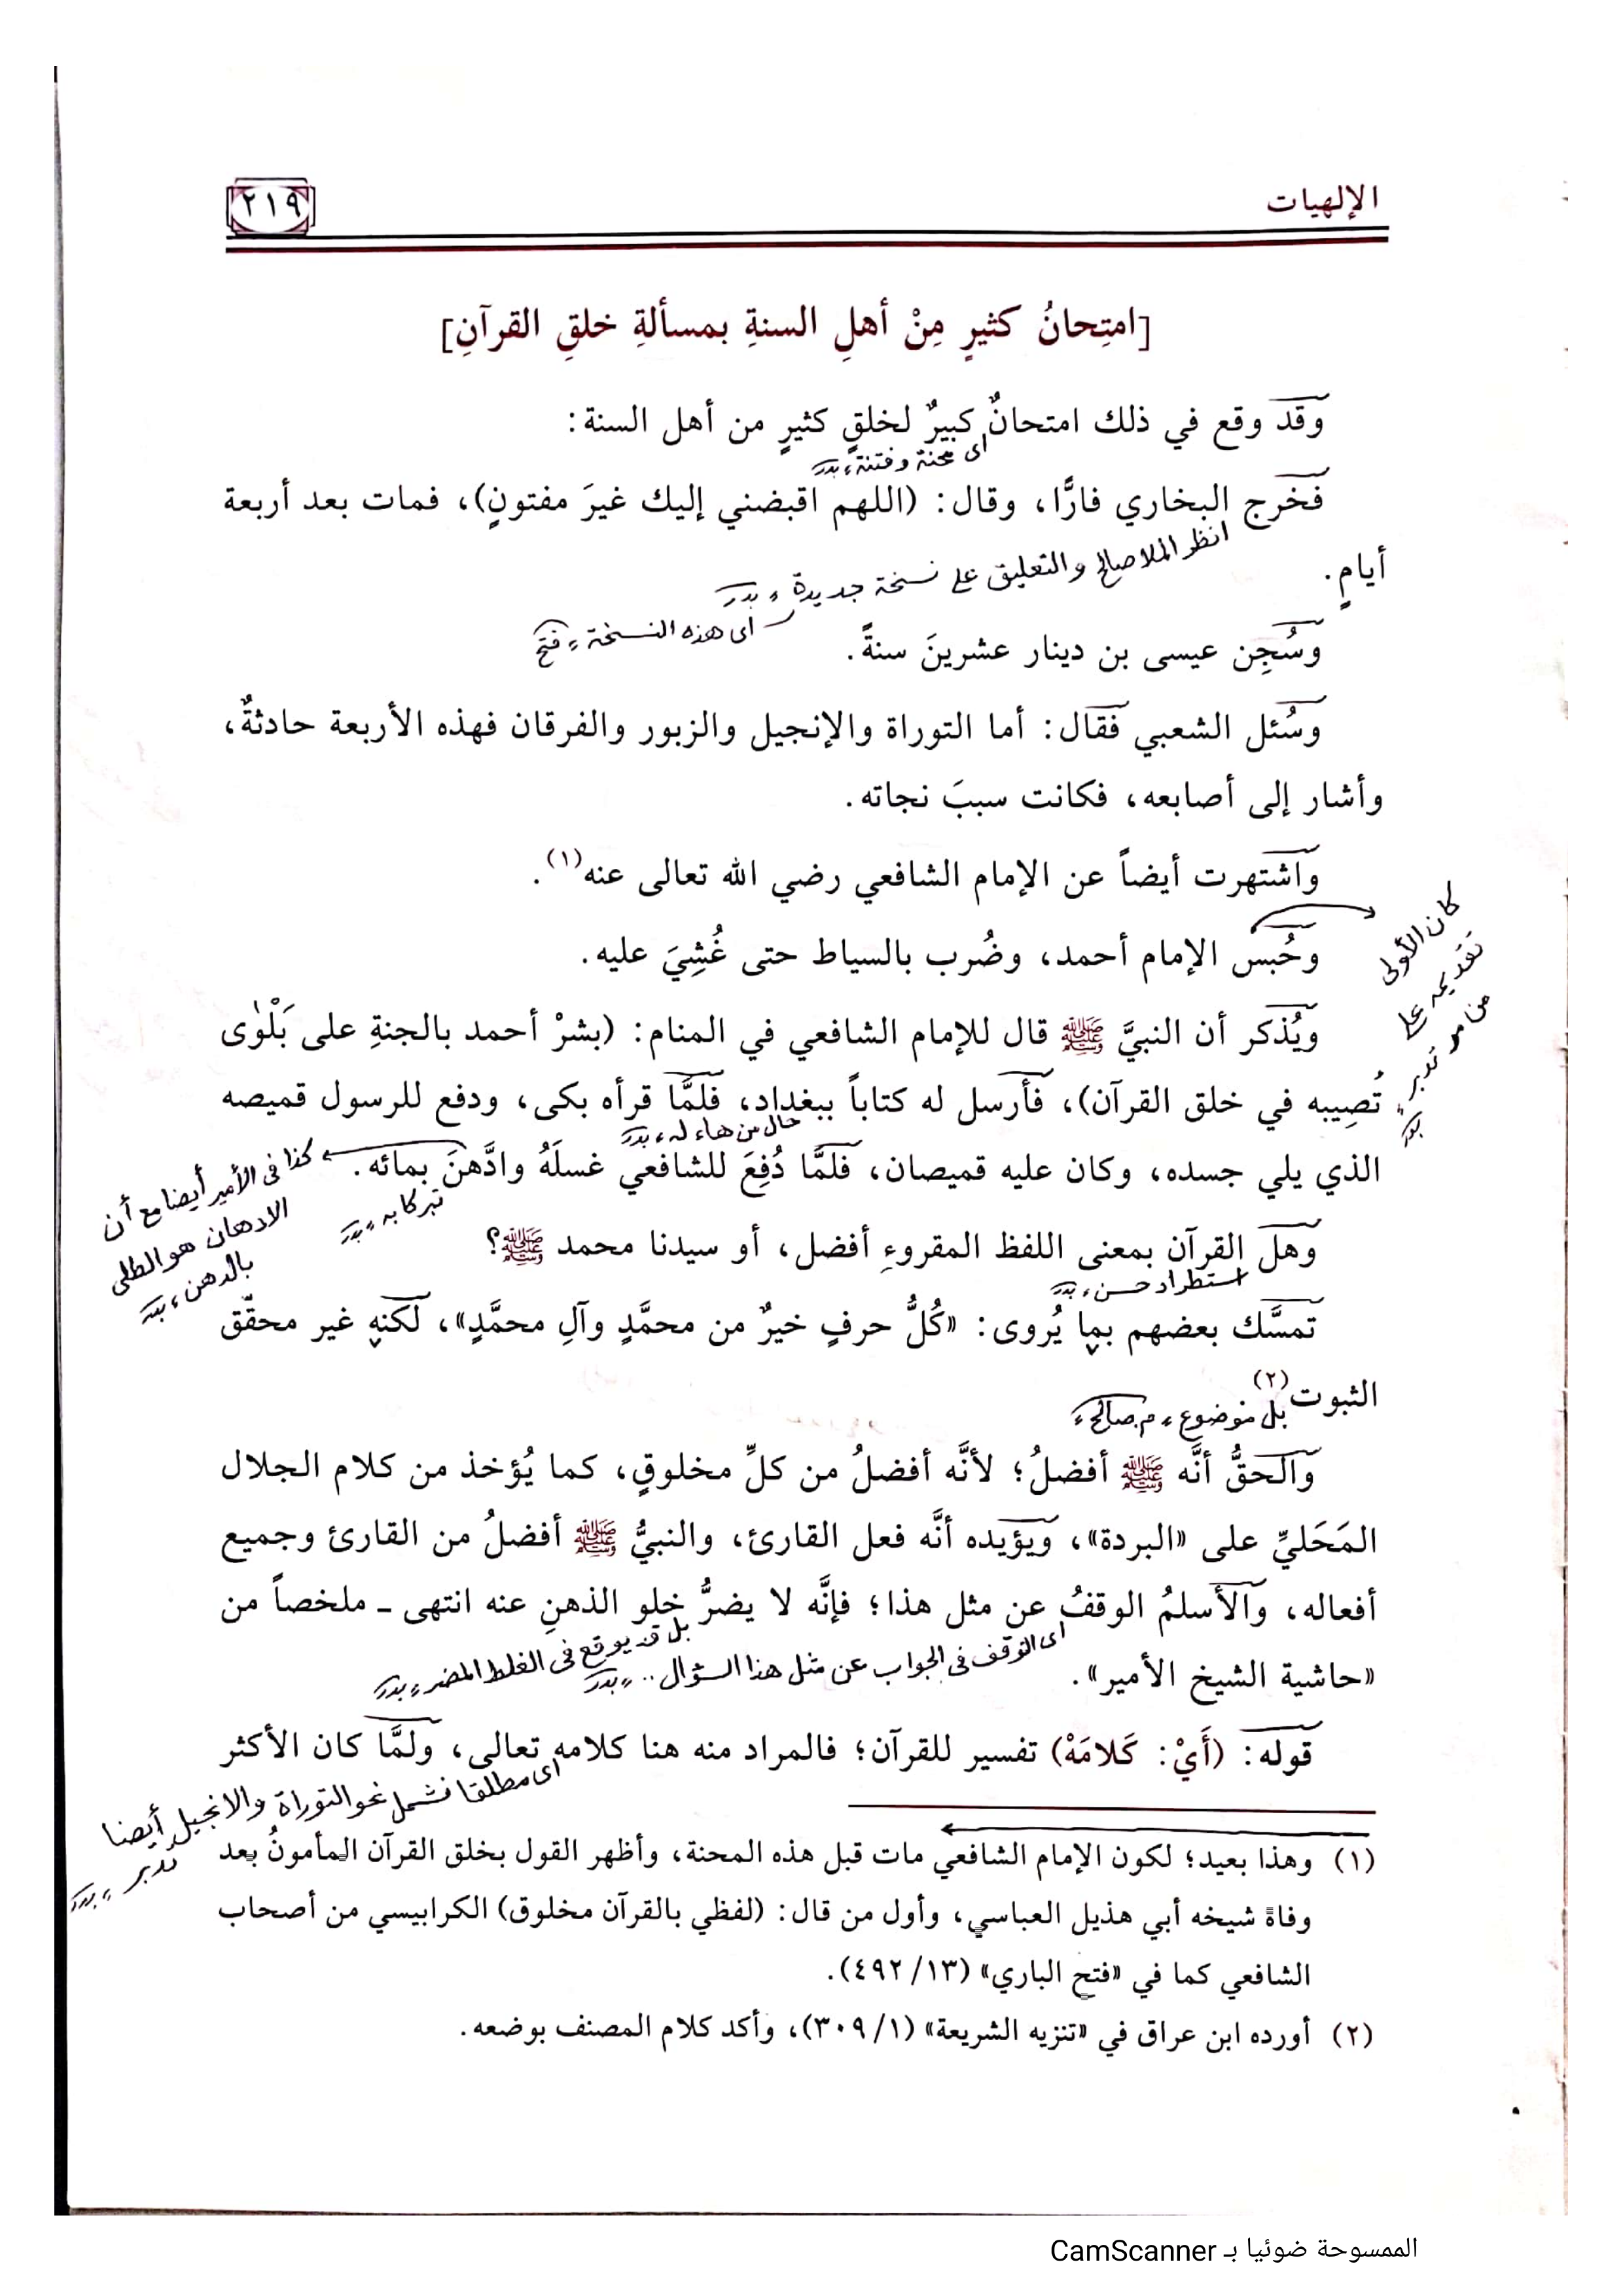 الإلهيات
٢١٩
[امتِحانُ كثيرٍ مِنْ أهلِ السنةِ بمسألةِ خلقِ القرآنِ]
وقد وقع في ذلك امتحانٌ كبيرٌ لخلقٍ كثيرٍ من أهل السنة:
اى محنة وفتنة، بدر
فخرج البخاري فارًّا، وقال: (اللهم اقبضني إليك غيرَ مفتونٍ)، فمات بعد أربعة
انظر الملا صالح والتعليق على نسخة جديدة، بدر
أيامٍ.
اى هذه النسخة، فتح
وسُجِن عيسى بن دينار عشرينَ سنةً.
وسُئل الشعبي فقال: أما التوراة والإنجيل والزبور والفرقان فهذه الأربعة حادثةٌ،
وأشار إلى أصابعه، فكانت سببَ نجاته.
واشتهرت أيضاً عن الإمام الشافعي رضي الله تعالى عنه(١).
وحُبس الإمام أحمد، وضُرب بالسياط حتى غُشِيَ عليه.
كان الأولى
تقديمه على
من مر تدبر
بدر
ويُذكر أن النبيَّ ﷺ قال للإمام الشافعي في المنام: (بشرْ أحمد بالجنةِ على بَلْوٰى
تُصِيبه في خلق القرآن)، فأرسل له كتاباً ببغداد، فلمَّا قرأه بكى، ودفع للرسول قميصه
حال من هاء له، بدر
الذي يلي جسده، وكان عليه قميصان، فلمَّا دُفِعَ للشافعي غسلَهُ وادَّهنَ بمائه.
تبركا به، بدر
كذا فى الأمير أيضا مع أن
الادهان هو الطلى
بالدهن، بدر
وهل القرآن بمعنى اللفظ المقروءِ أفضل، أو سيدنا محمد ﷺ؟
استطراد حسن، بدر
تمسَّك بعضهم بما يُروى: «كُلُّ حرفٍ خيرٌ من محمَّدٍ وآلِ محمَّدٍ»، لكنه غير محقّق
الثبوت(٢)
بل موضوع، م صالح
والحقُّ أنَّه ﷺ أفضلُ؛ لأنَّه أفضلُ من كلِّ مخلوقٍ، كما يُؤخذ من كلام الجلال
المَحَليِّ على «البردة»، ويؤيده أنَّه فعل القارئ، والنبيُّ ﷺ أفضلُ من القارئ وجميع
أفعاله، والأسلمُ الوقفُ عن مثل هذا؛ فإنَّه لا يضرُّ خلو الذهنِ عنه انتهى ـ ملخصاً من
اى التوقف فى الجواب عن مثل هذا السؤال.. بدر
بل قد يوقع فى الغلط المضر، بدر
«حاشية الشيخ الأمير».
قوله: (أَيْ: كَلامَهْ) تفسير للقرآن؛ فالمراد منه هنا كلامه تعالى، ولمَّا كان الأكثر
اى مطلقا فشمل نحو التوراة والانجيل أيضا
تدبر، بدر
(١) وهذا بعيد؛ لكون الإمام الشافعي مات قبل هذه المحنة، وأظهر القول بخلق القرآن المأمونُ بعد
وفاة شيخه أبي هذيل العباسي، وأول من قال: (لفظي بالقرآن مخلوق) الكرابيسي من أصحاب
الشافعي كما في «فتح الباري» (١٣/ ٤٩٢).
(٢) أورده ابن عراق في «تنزيه الشريعة» (١/ ٣٠٩)، وأكد كلام المصنف بوضعه.
الممسوحة ضوئيا بـ CamScanner